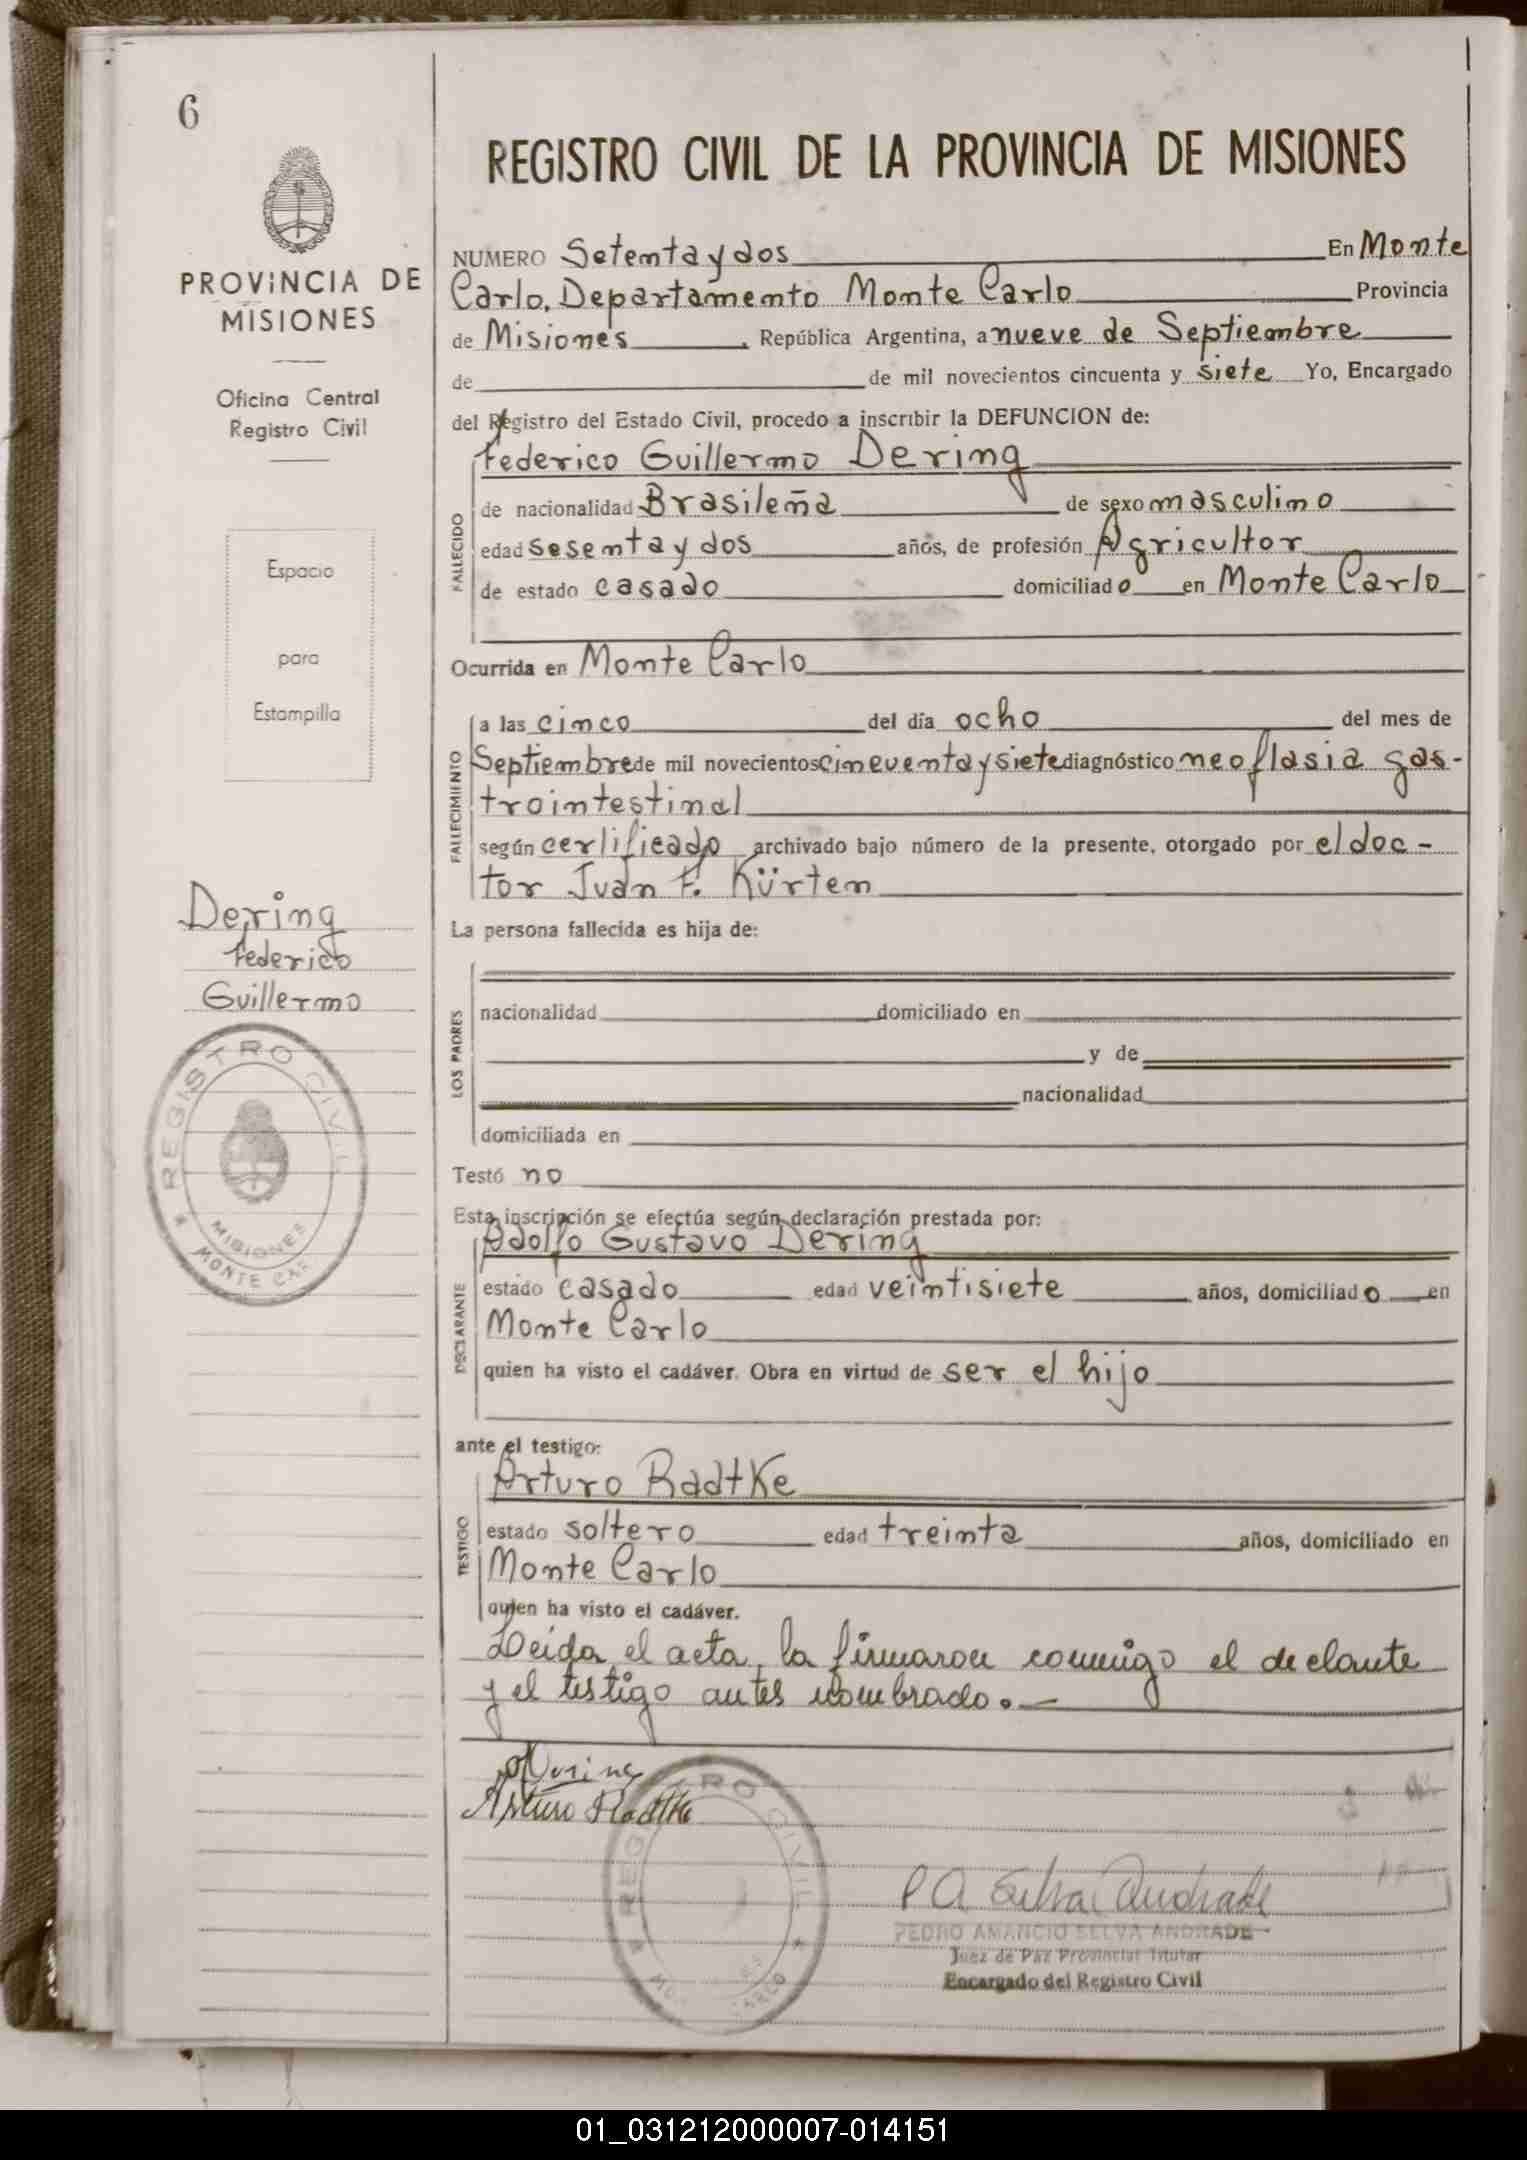 6
PROVINCIA DE
MISIONES
Oficina Central
Registro Civil
Espacio
para
Estampilla
Dering
Federico
Guillermo
REGISTRO CIVIL
MISIONES
MONTE CAR
REGISTRO CIVIL DE LA PROVINCIA DE MISIONES
NUMERO Setenta y dos En Monte
Carlo, Departamento Monte Carlo Provincia
de Misiones, República Argentina, a nueve de Septiembre
de de mil novecientos cincuenta y siete Yo, Encargado
del Registro del Estado Civil, procedo a inscribir la DEFUNCION de:
FALLECIDO
Federico Guillermo Dering
de nacionalidad Brasileña de sexo masculino
edad sesenta y dos años, de profesión Agricultor
de estado casado domiciliado en Monte Carlo
Ocurrida en Monte Carlo
FALLECIMIENTO
a las cinco del día ocho del mes de
Septiembre de mil novecientos cincuenta y siete diagnóstico neoflasia gas-
trointestinal
según certificado archivado bajo número de la presente, otorgado por el doc-
tor Juan F. Kürten
La persona fallecida es hija de:
LOS PADRES
nacionalidad domiciliado en
y de
nacionalidad
domiciliada en
Testó no
Esta inscripción se efectúa según declaración prestada por:
DECLARANTE
Adolfo Gustavo Dering
estado casado edad veintisiete años, domiciliado en
Monte Carlo
quien ha visto el cadáver. Obra en virtud de ser el hijo
ante el testigo:
TESTIGO
Arturo Radtke
estado soltero edad treinta años, domiciliado en
Monte Carlo
quien ha visto el cadáver.
Leída el acta, la firmaron conmigo el declante
y el testigo antes nombrado.-
Dering
Arturo Radtke
REG TRO CIVIL
CARLO
P A Selva Andrade
PEDRO AMANCIO SELVA ANDRADE
Juez de Paz Provincial Titular
Encargado del Registro Civil
01_031212000007-014151